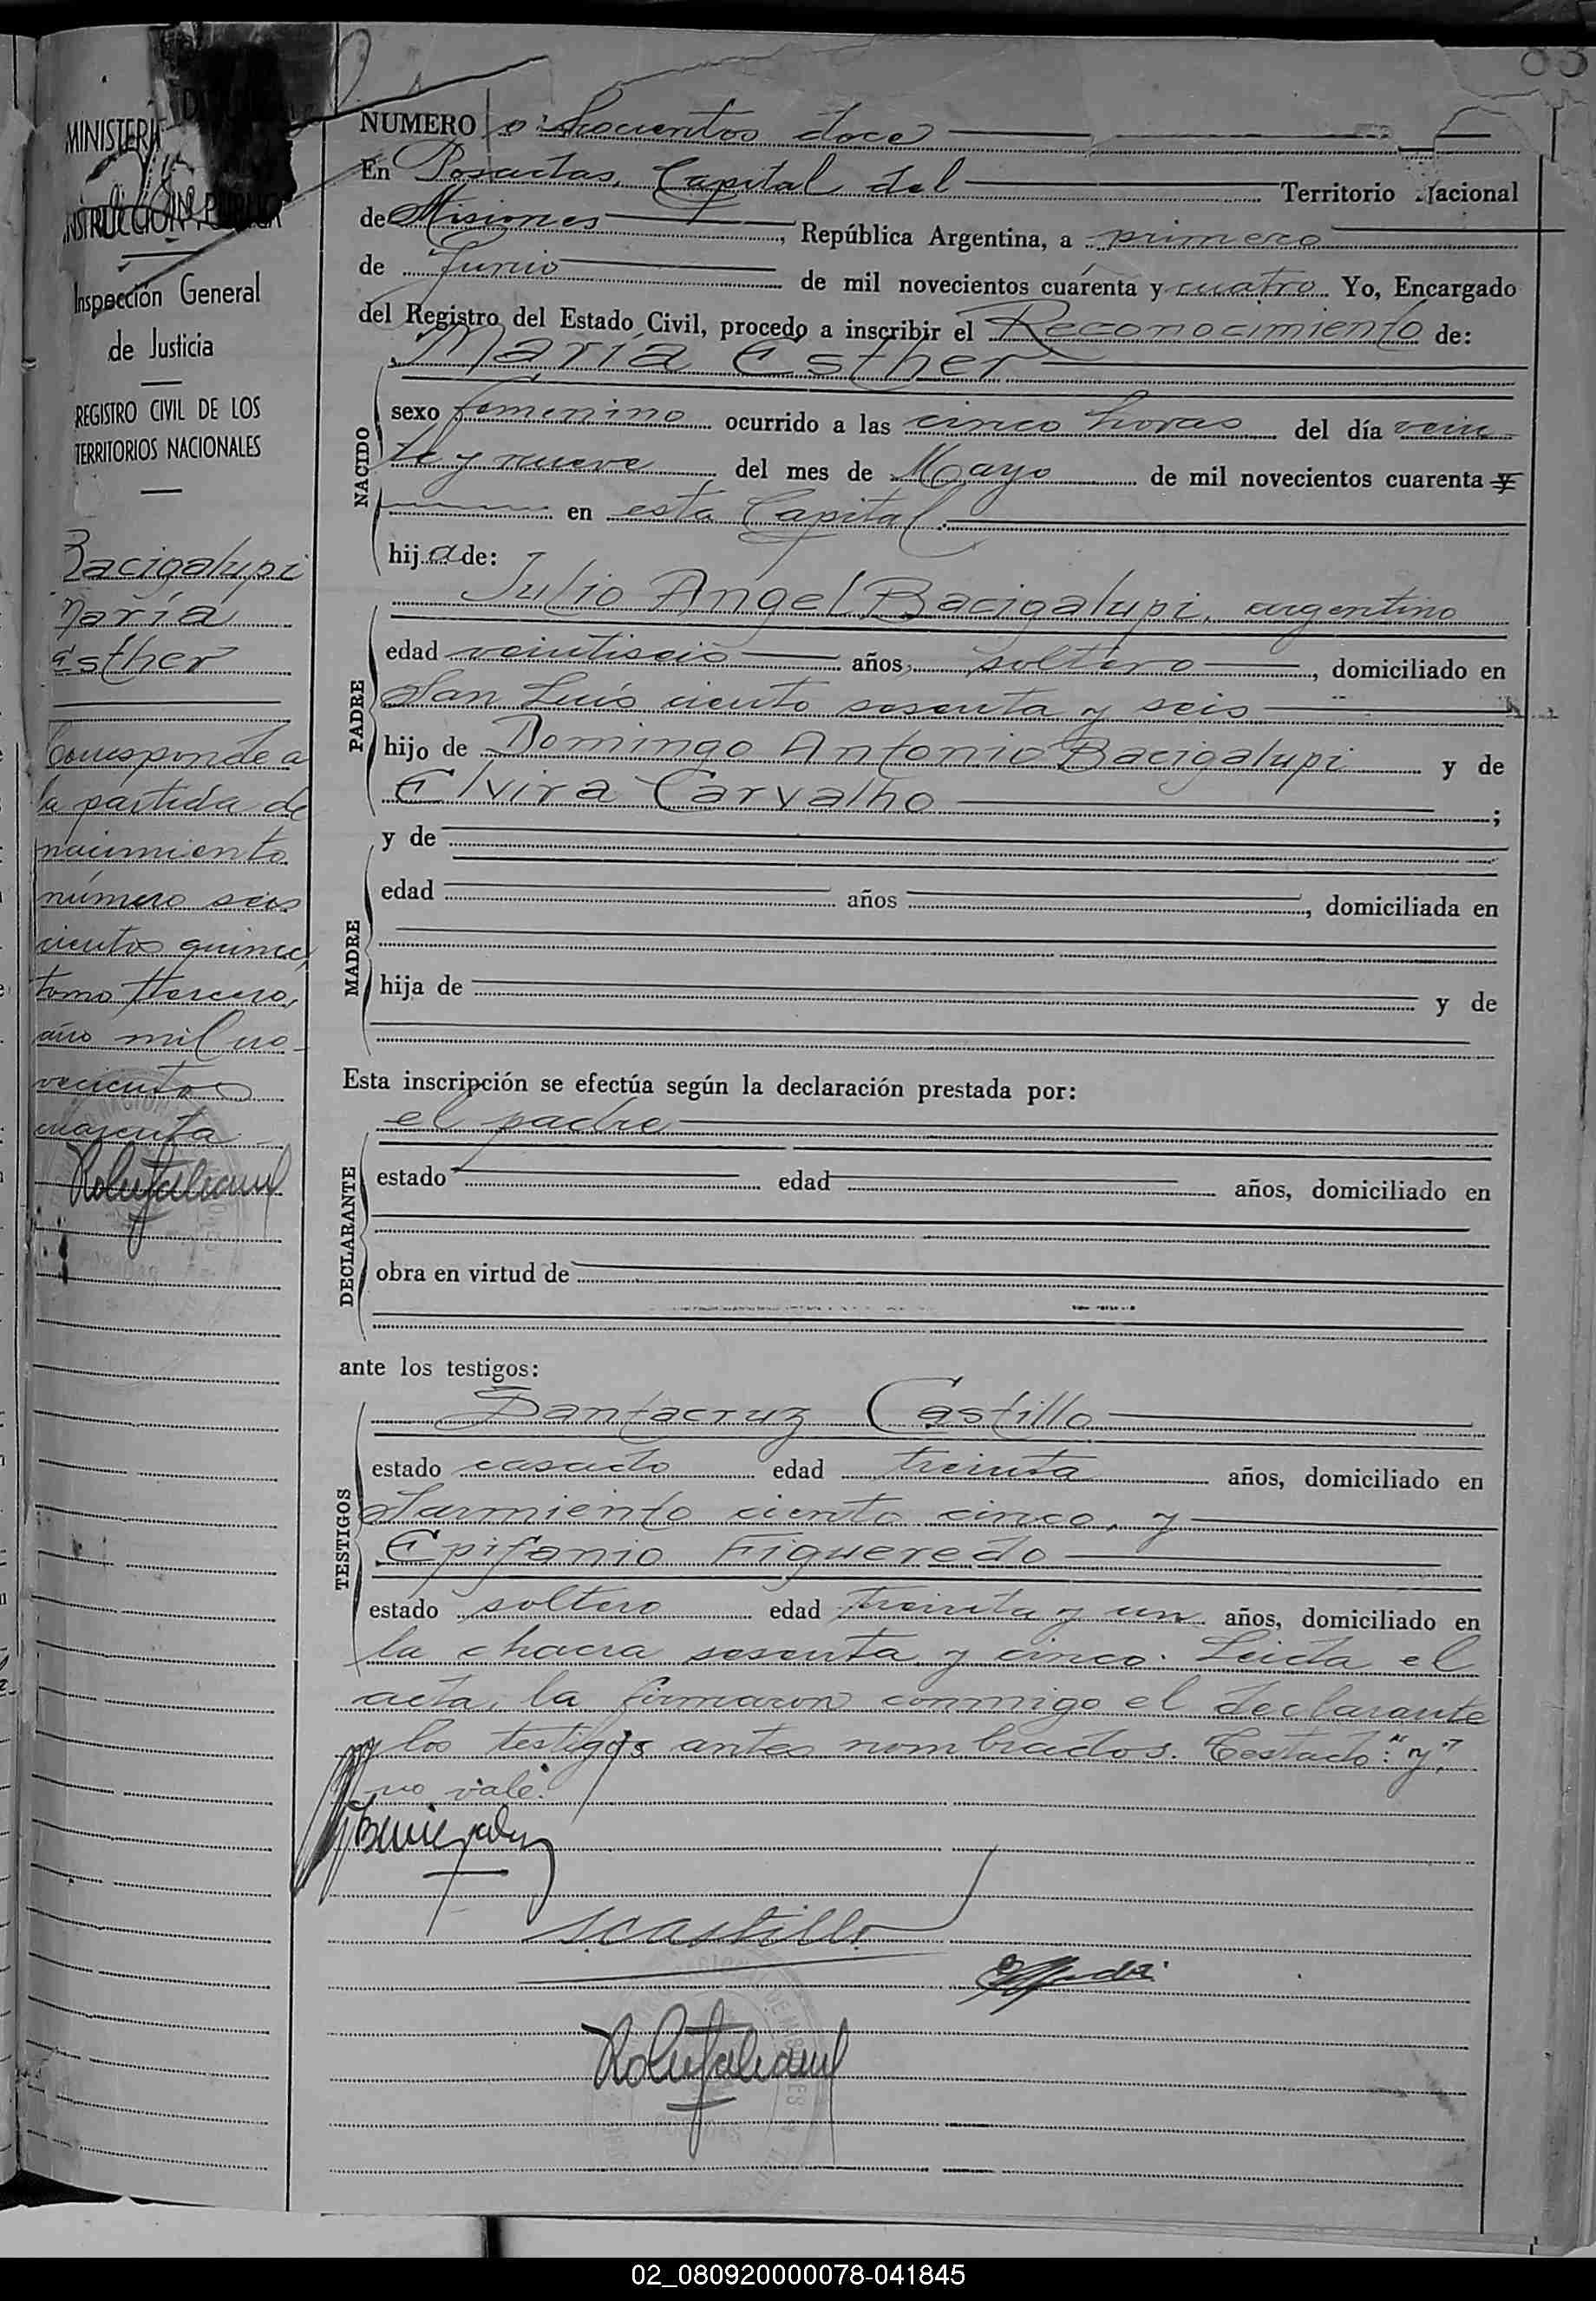 83
MINISTERI
INSTRUCCION PUBLICA
Inspección General
de Justicia
REGISTRO CIVIL DE LOS
TERRITORIOS NACIONALES
Bacigalupi
María
Esther
Corresponde a
la partida de
nacimiento
número seis
cientos quince,
tomo tercero,
año mil no-
vecientos
cuarenta
NUMERO ochocientos doce
En Posadas, Capital del Territorio Nacional
de Misiones, República Argentina, a primero
de Junio de mil novecientos cuarenta y cuatro Yo, Encargado
del Registro del Estado Civil, procedo a inscribir el Reconocimiento de:
María Esther
NACIDO
sexo femenino ocurrido a las cinco horas del día vein
te y nueve del mes de Mayo de mil novecientos cuarenta y
en esta Capital.
hija de:
PADRE
Julio Angel Bacigalupi, argentino
edad veintiseis años, soltero, domiciliado en
San Luis ciento sesenta y seis
hijo de Domingo Antonio Bacigalupi y de
Elvira Carvalho;
MADRE
y de
edad años, domiciliada en
hija de y de
Esta inscripción se efectúa según la declaración prestada por:
DECLARANTE
el padre
estado edad años, domiciliado en
obra en virtud de
ante los testigos:
TESTIGOS
Santacruz Castillo
estado casado edad treinta años, domiciliado en
Sarmiento ciento cinco, y
Epifanio Figueredo
estado soltero edad treinta y un años, domiciliado en
la chacra sesenta y cinco. Leida el
acta, la firmaron conmigo el declarante
y los testigos antes nombrados. Testado: "y",
no vale.
S Castillo
02_080920000078-041845